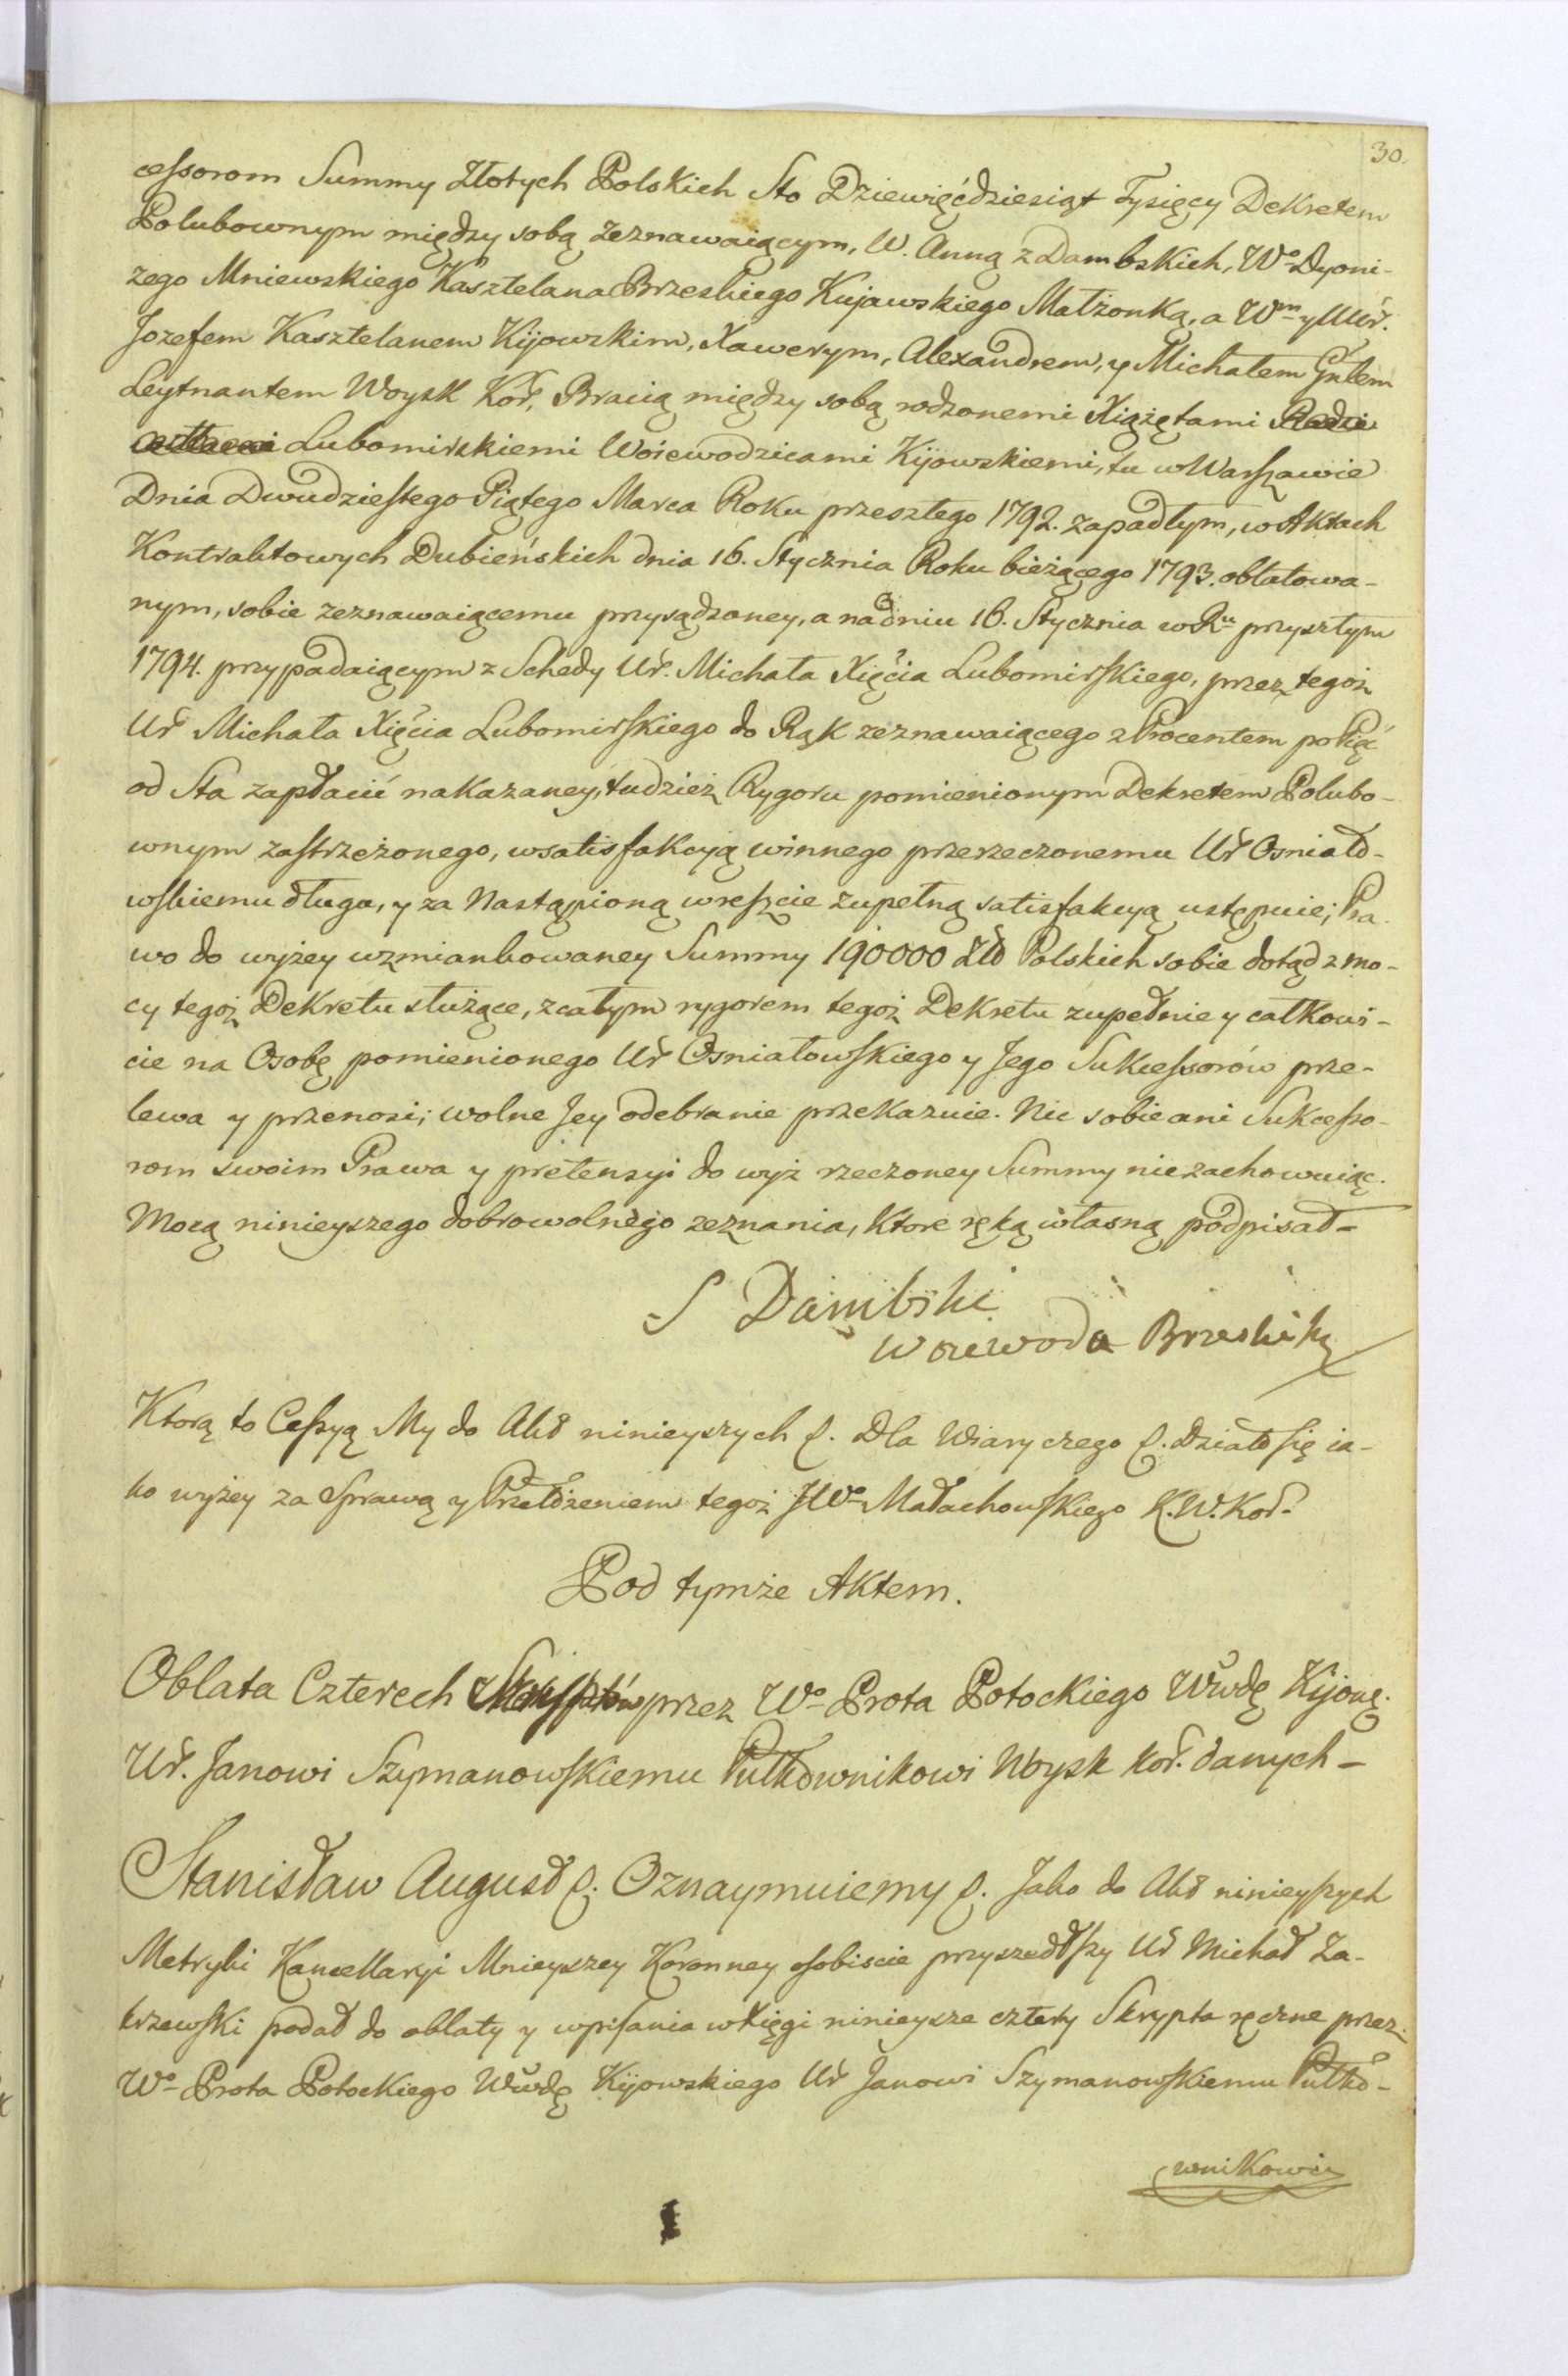 30.
cessorom Summy Złotych Polskich Sto Dziewięćdziesiąt Tysięcy Dekretem
Polubownym między sobą zeznawaiącym, W. Anną z Dambskich, Wo Dyoni-
zego Mniewskiego Kasztelana Brzeskiego Kujawskiego Małżonką, a Wm y UUr.
Jozefem Kasztelanem Kijowskim, Xawerym, Alexandrem, y Michałem Gnłem
Leytnantem Woysk Kor, Bracią między sobą rodzonemi Xiążętami
Lubomirskiemi Woiewodzicami Kijowskiemi, tu w Warszawie
Dnia Dwudziestego Piątego Marca Roku przeszłego 1792. zapadłym, w Aktach
Kontraktowych Dubieńskich dnia 16. Stycznia Roku bieżącego 1793. oblatowa-
nym, sobie zeznawaiącemu przysądzoney, a na dniu 16. Stycznia w Ru przyszłym
1794. przypadaiącym z Schedy Ur. Michała Xięcia Lubomirskiego, przez tegoż
Ur Michała Xięcia Lubomirskiego do Rąk zeznawaiącego z Procentem po Pięć
od Sta zapłacić nakazaney, tudzież Rygoru pomienionym Dekretem Polubo-
wnym zastrzeżonego, w satisfakcyą winnego przerzeczonemu Ur Osniało-
wskiemu długu, y za Nastąpioną wreszcie zupełną satisfakcyą ustępuie; Pra-
wo do wyżey wzmiankowaney Summy 190000 Zło Polskich sobie dotąd z mo-
cy tegoż Dekretu służące, z całym rygorem tegoż Dekretu zupełnie y całkowi-
cie na Osobę pomienionego Ur Osniałowskiego y Jego Sukcessorów prze-
lewa y przenosi; wolne Jey odebranie przekazuie. Nic sobie ani Sukcesso-
rom swoim Prawa y pretensyi do wyż rzeczoney Summy nie zachowuiąc.
Mocą ninieyszego dobrowolnego zeznania, Ktore ręką własną podpisał-
S Dąmbski
Woiewoda Brzeski Kuj
Ktorą to Cessyą My do Akt ninieyszych &. Dla Wiary czego &. Działo się ia-
ko wyżey za Sprawą y Przełożeniem tegoż JWo Małachowskiego K. W. Kor.
Pod tymże Aktem.
Oblata Czterech Skryptów przez Wo Prota Potockiego Wwdę Kijowg.
Ur. Janowi Szymanowskiemu Pułkownikowi Woysk Kor. danych-
Stanisław August &. Oznaymuiemy &. Jako do Akt ninieyszych
Metryki Kancellaryi Mnieyszey Koronney osobiscie przyszedłszy Ur Michał Za-
krzewski podał do oblaty y wpisania w Xięgi ninieysze cztery Skrypta ręczne przez
Wo Prota Potockiego Wwdę Kijowskiego Ur Janowi Szymanowskiemu Pułko-
wnikowi